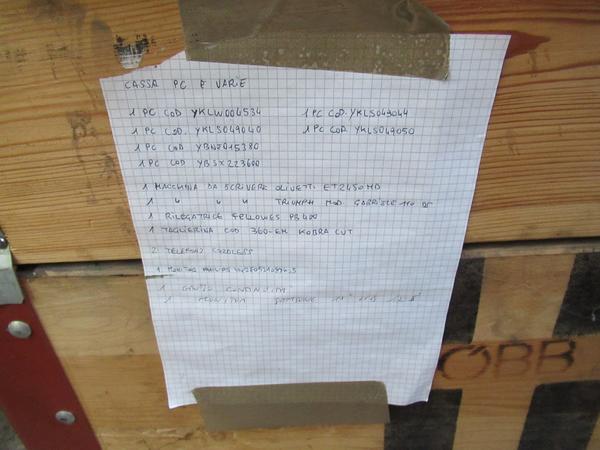 CASSA PC E VARIE
1 PC COD YKLW006534 1 PC COD. YKLS049044
1 PC COD. YKLS049040 1 PC COD. YKLS049050
1 PC COD YBNZ015380
1 PC COD YBSX223600
1 MACCHINA DA SCRIVERE OLIVETTI ET2450MD
1 " " " TRIUMPH MOD. GABRIELE 110 DS
1 RILEGATRICE FELLOWES PB400
1 TAGLIERINA COD 360-EM KOBRA CUT
2 TELEFONI CORDLESS
1 MONITOR PHILIPS
1 GRUPPO CONTINUITÀ
1 MONITOR
ÖBB